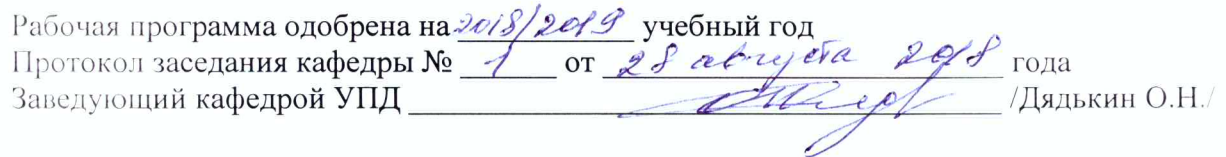 Рабочая программа одобрена на 2018/2019 учебный год
Протокол заседания кафедры № 1 от 28 августа 2018 года
Заведующий кафедрой УПД /Дядькин О.Н./